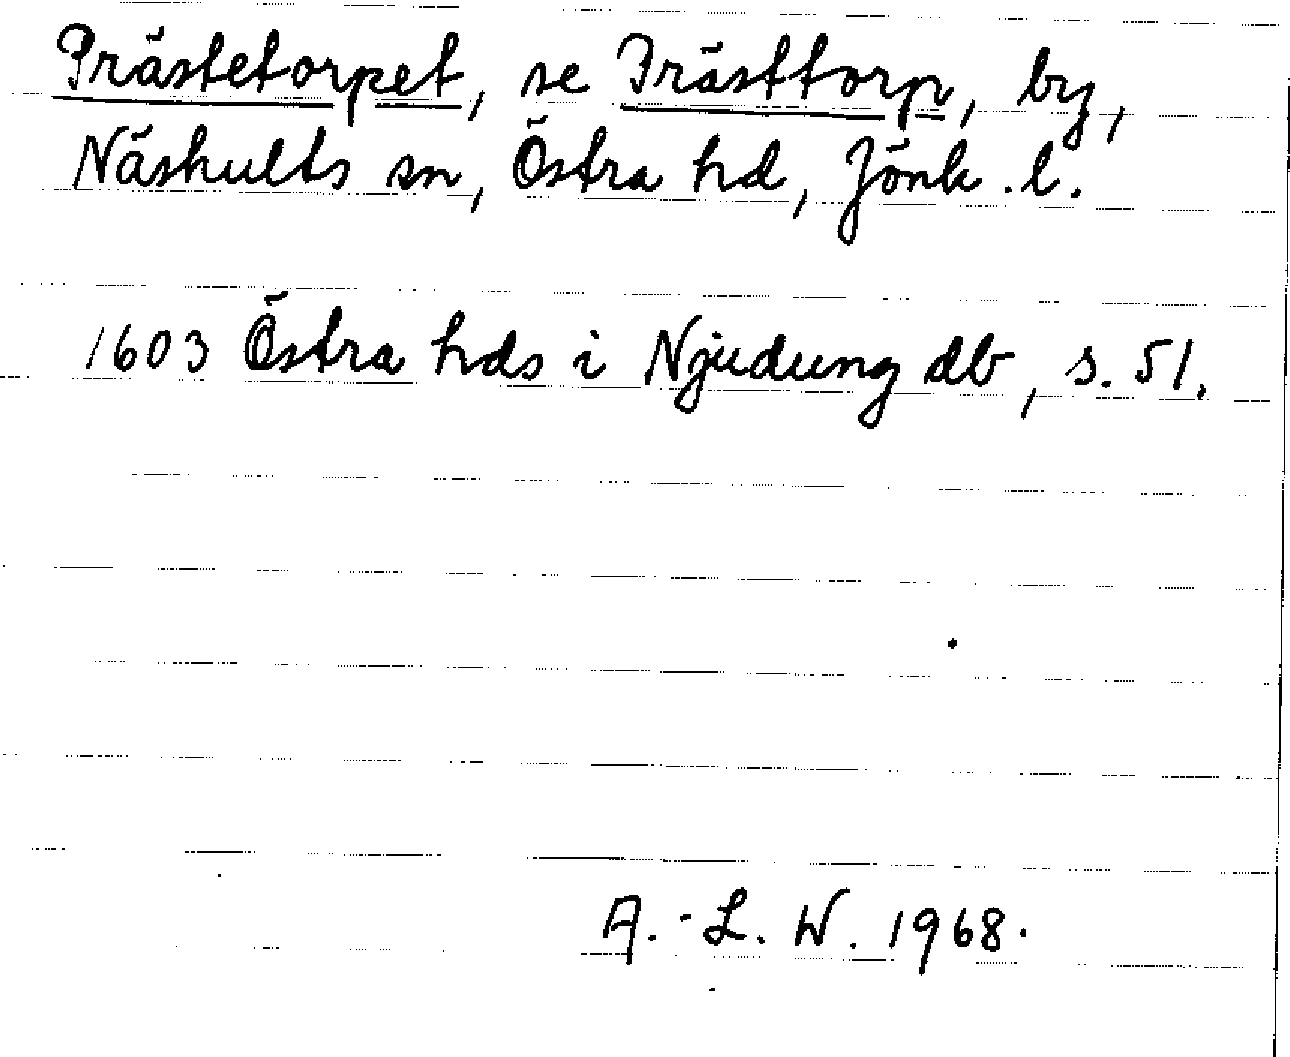 Prästetorpet, se Prästtorp, by,
Näshults sn, Östra hd, Jönk. l.
1603 Östra hds i Njudung db, s. 51.
A.-L. W. 1968.